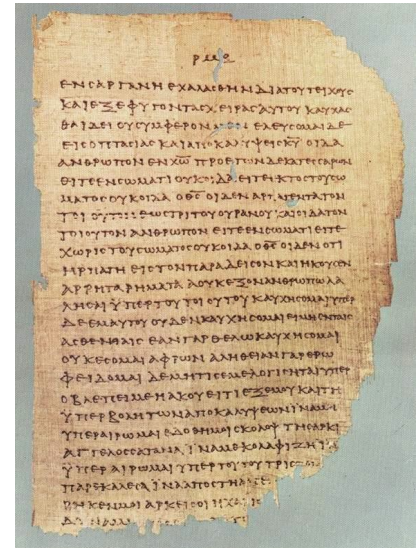 ΕΝ ΣΑΡΓΑΝΗ ΕΧΑΛΑΣΘΗΝ ΔΙΑ ΤΟΥ ΤΕΙΧΟΥΣ
ΚΑΙ ΕΞΕΦΥΓΟΝ ΤΑΣ ΧΕΙΡΑΣ ΑΥΤΟΥ ΚΑΥΧΑΣ
ΘΑΙ ΔΕΙ ΟΥ ΣΥΜΦΕΡΟΝ ΕΛΕΥΣΟΜΑΙ ΔΕ
ΕΙΣ ΟΠΤΑΣΙΑΣ ΚΑΙ ΑΠΟΚΑΛΥΨΕΙΣ ΚΥ ΟΙΔΑ
ΑΝΘΡΩΠΟΝ ΕΝ ΧΩ ΠΡΟ ΕΤΩΝ ΔΕΚΑΤΕΣΣΑΡΩΝ
ΕΙΤΕ ΕΝ ΣΩΜΑΤΙ ΟΥΚ ΟΙΔΑ ΕΙΤΕ ΕΚΤΟΣ ΤΟΥ ΣΩ
ΜΑΤΟΣ ΟΥΚ ΟΙΔΑ Ο ΘΣ ΟΙΔΕΝ ΑΡΠΑΓΕΝΤΑ ΤΟΝ
ΤΟΙΟΥΤΟΝ ΕΩΣ ΤΡΙΤΟΥ ΟΥΡΑΝΟΥ ΚΑΙ ΟΙΔΑ ΤΟΝ
ΤΟΙΟΥΤΟΝ ΑΝΘΡΩΠΟΝ ΕΙΤΕ ΕΝ ΣΩΜΑΤΙ ΕΙΤΕ
ΧΩΡΙΣ ΤΟΥ ΣΩΜΑΤΟΣ ΟΥΚ ΟΙΔΑ Ο ΘΣ ΟΙΔΕΝ ΟΤΙ
ΗΡΠΑΓΗ ΕΙΣ ΤΟΝ ΠΑΡΑΔΕΙΣΟΝ ΚΑΙ ΗΚΟΥΣΕΝ
ΑΡΡΗΤΑ ΡΗΜΑΤΑ Α ΟΥΚ ΕΞΟΝ ΑΝΘΡΩΠΩ ΛΑ
ΛΗΣΑΙ ΥΠΕΡ ΤΟΥ ΤΟΙΟΥΤΟΥ ΚΑΥΧΗΣΟΜΑΙ ΥΠΕΡ
ΔΕ ΕΜΑΥΤΟΥ ΟΥΔΕΝ ΚΑΥΧΗΣΟΜΑΙ ΕΙ ΜΗ ΕΝ ΤΑΙΣ
ΑΣΘΕΝΙΑΙΣ ΕΑΝ ΓΑΡ ΘΕΛΩ ΚΑΥΧΗΣΟΜΑΙ
ΟΥΚ ΕΣΟΜΑΙ ΑΦΡΩΝ ΑΛΗΘΕΙΑΝ ΓΑΡ ΕΡΩ
ΦΕΙΔΟΜΑΙ ΔΕ ΜΗ ΤΙΣ ΕΜΕ ΛΟΓΙΣΗΤΑΙ ΥΠΕΡ
Ο ΒΛΕΠΕΙ ΜΕ Η ΑΚΟΥΕΙ ΤΙ ΕΞ ΕΜΟΥ ΚΑΙ ΤΗ
ΥΠΕΡΒΟΛΗ ΤΩΝ ΑΠΟΚΑΛΥΨΕΩΝ ΙΝΑ ΜΗ
ΥΠΕΡΑΙΡΩΜΑΙ ΕΔΟΘΗ ΜΟΙ ΣΚΟΛΟΨ ΤΗ ΣΑΡΚΙ
ΑΓΓΕΛΟΣ ΣΑΤΑΝΑ ΙΝΑ ΜΕ ΚΟΛΑΦΙΖΗ ΙΝΑ
ΥΠΕΡΑΙΡΩΜΑΙ ΥΠΕΡ ΤΟΥΤΟΥ ΤΡΙΣ
ΠΑΡΕΚΑΛΕΣΑ ΙΝΑ ΑΠΟΣΤΗ
ΡΗΚΕΝ ΜΟΙ ΑΡΚΕΙ ΣΟΙ Η ΧΑΡΙΣ